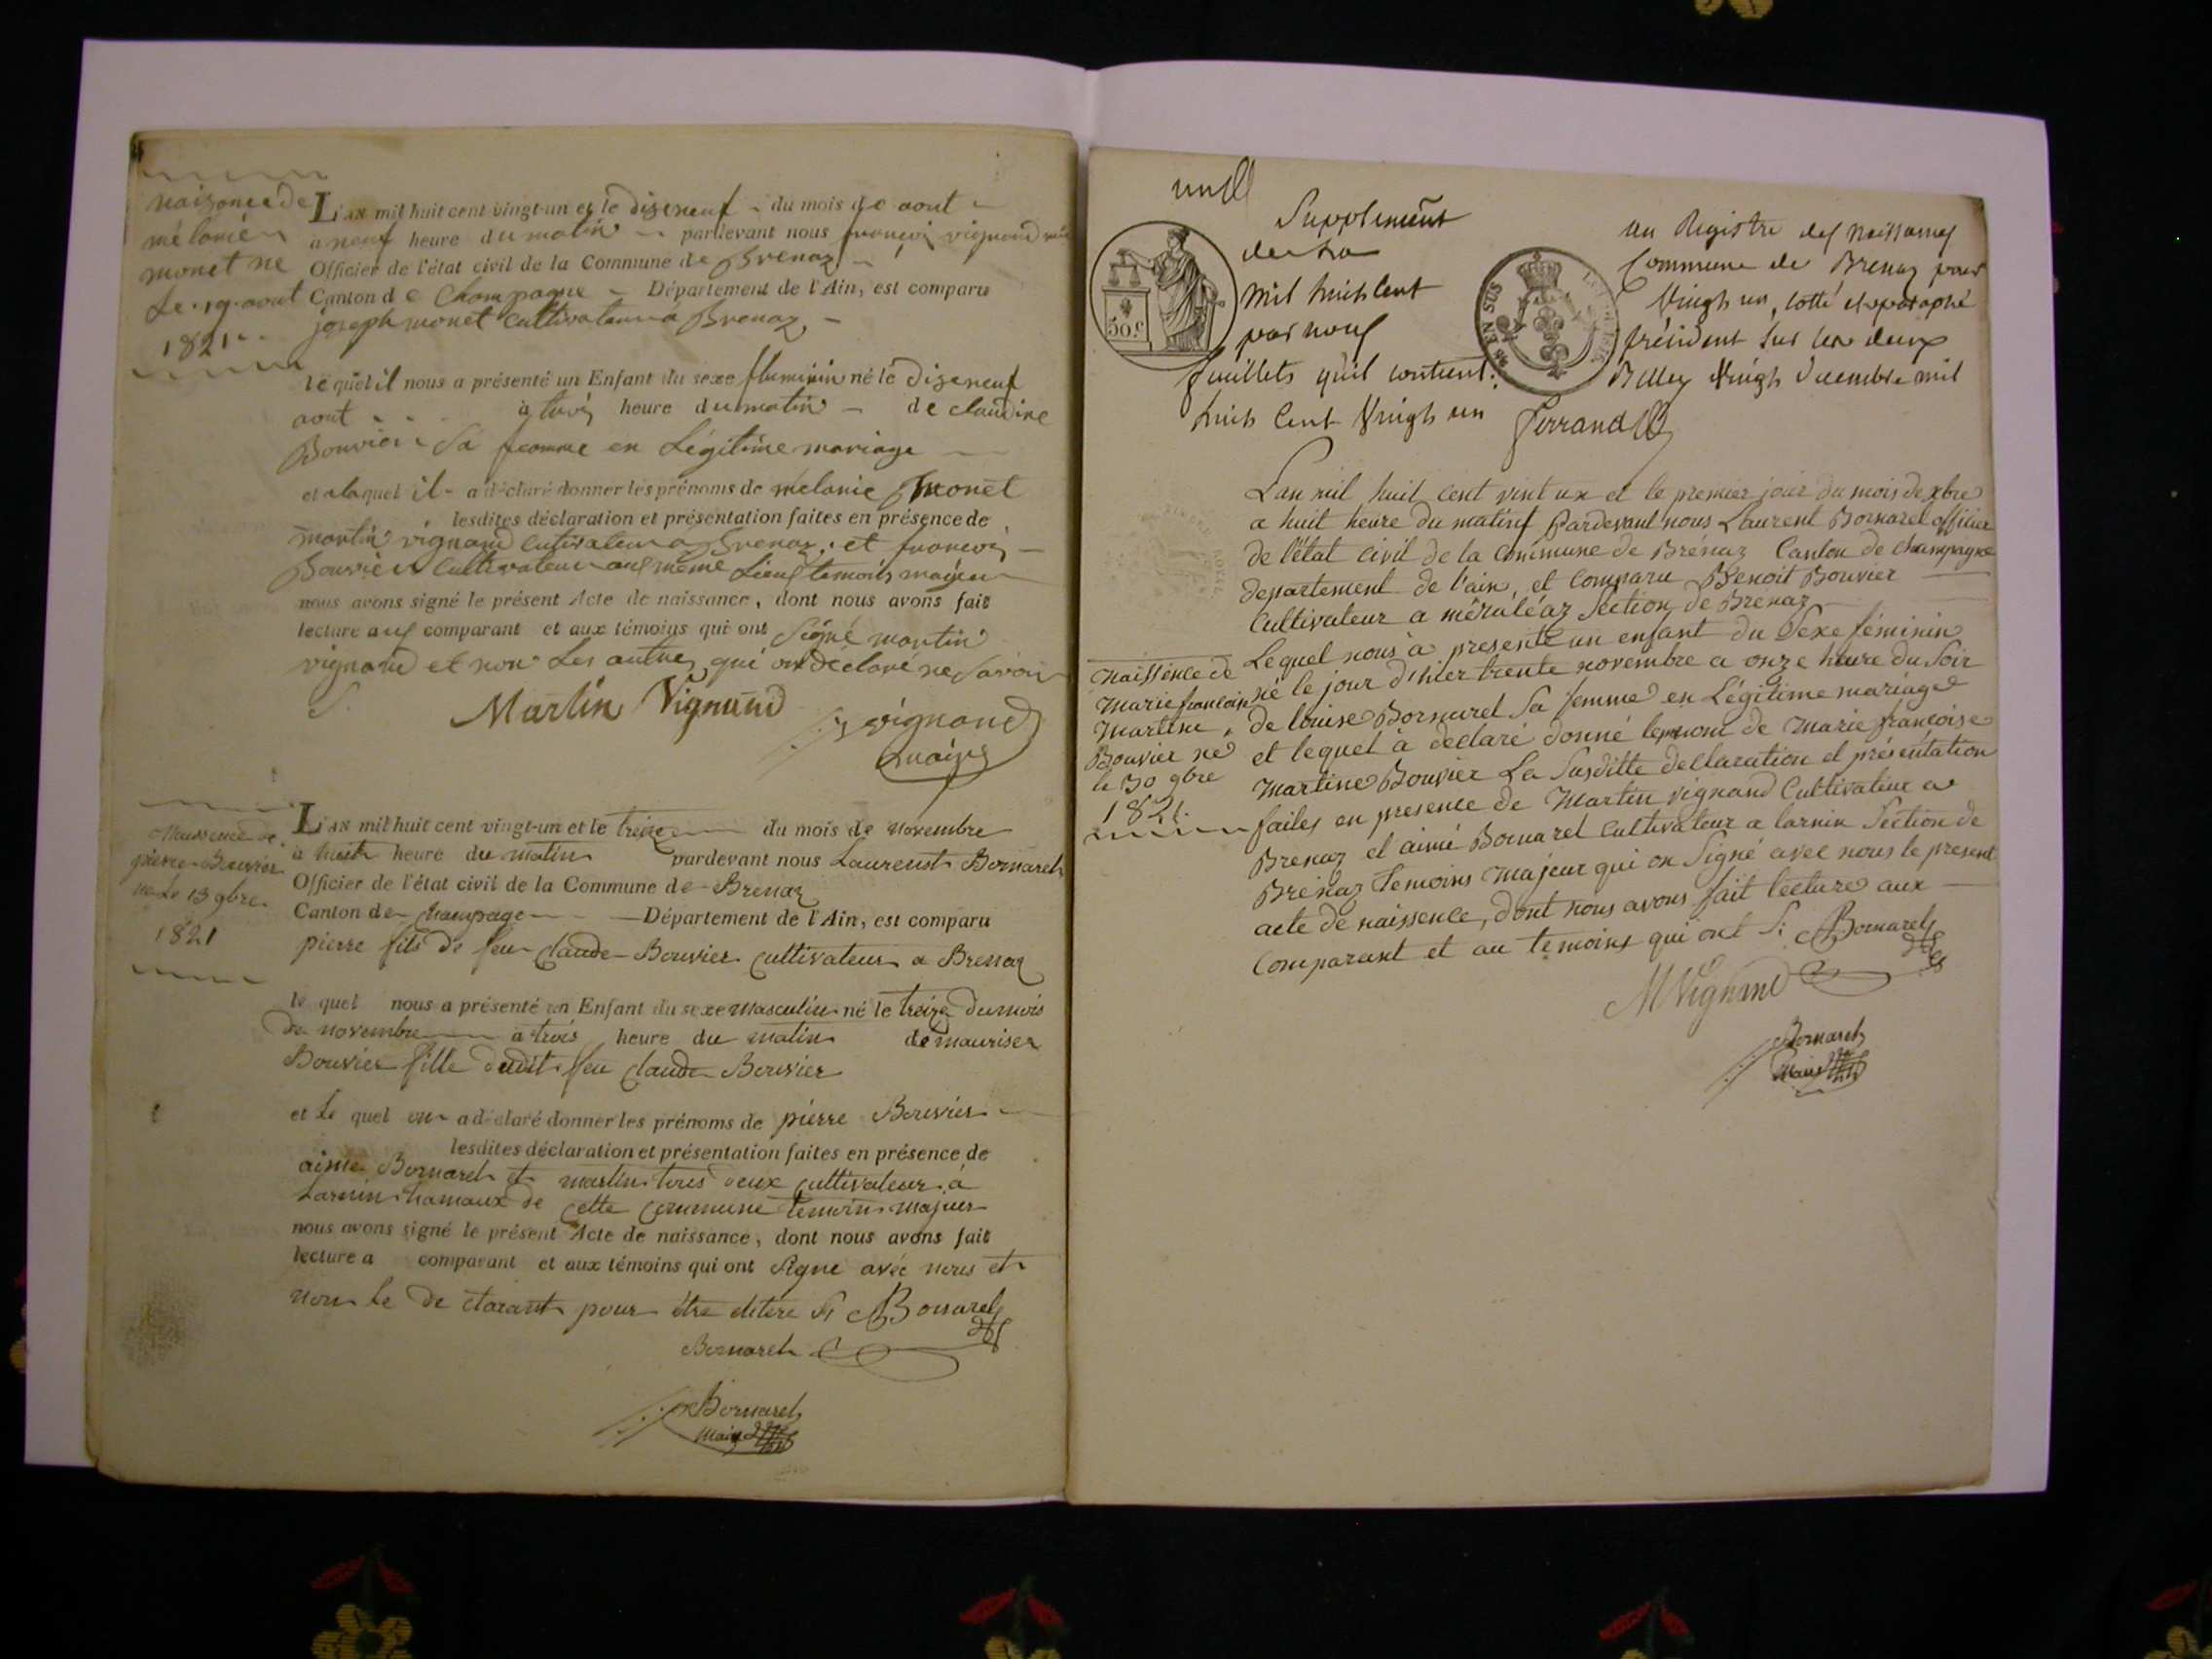 naisance de
mélanie
monet né
Le 19 aout
1821
L'AN mil huit cent vingt-un et le dixneuf du mois de aout
a neuf heure du matin pardevant nous françois vignand
Officier de l'état civil de la Commune de Brenaz
Canton de Champagne Département de l'Ain, est comparu
joseph monet cultivateur a Brenaz
lequel il nous a présenté un Enfant du sexe né le dizneuf
aout à heure du matin de claudine
Bouvier Sa femme en Légitime mariage
et alaquel il a déclaré donner les prénoms de mélanie monet
lesdites déclaration et présentation faites en présence de
martin vignand cultivateur a Brenaz et françois
Bouvier cultivateur au même Lieu temoins majeur
nous avons signé le présent Acte de naissance, dont nous avons fait
lecture aux comparant et aux témoins qui ont Signé martin
vignand et non Les autres qui on déclaré ne Savoir
S.
Martin Vignand
vignand
maire
Naissence de
pierre Bouvier
né Le 13 9bre
1821
L'AN mil huit cent vingt-un et le treize du mois de novembre
à huit heure du matin pardevant nous Laurent Bornarel
Officier de l'état civil de la Commune de Brenaz
Canton de Champage Département de l'Ain, est comparu
pierre fils de feu Claude Bouvier cultivateur a Brenaz
le quel nous a présenté un Enfant du sexe masculin né le treize du mois
de novembre a trois heure du matin de
Bouvier fille dudit feu Claude Bouvier
et le quel on a déclaré donner les prénoms de pierre Bouvier
lesdites déclaration et présentation faites en présence de
aimé Bornarel et martin tous deux cultivateur à
Larnin hamaux de cette commune temoin majeur
nous avons signé le présent Acte de naissance, dont nous avons fait
lecture a comparant et aux témoins qui ont Signe avec nous et
non le declarant pour être S. Bornarel
Bornarel
Bornarel
maire
Supplement au Registre des naissances
de la Commune de Brenaz pour
mil huit cent Vingt un, cotté et paraphé
par nous président sur les deux
feuillets qu'il contient. Belley Vingt Décembre mil
huit Cent Vingt un Ferrand
50 C
EN SUS
Naissence de
Marie francoise
Martine
Bouvier né
le 30 9bre
1821.
L'an mil huit cent vint un et le premier jour du mois de xbre
a huit heure du matin Pardevant nous Laurent Bornarel officier
de l'état civil de la Commune de Brénaz Canton de champagne
departement de l'ain, et comparu Benoit Bouvier
Cultivateur a méraléaz Section de Brénaz
Lequel nous à presenté un enfant du Sexe féminin
né le jour d'hier trente novembre a onze heure du Soir
de louise Bornarel Sa femme en Légitime mariage
et lequel à déclaré donné le prenom de Marie françoise
Martine Bouvier La Susditte declaration et présentation
faites en presence de Martin vignand Cultivateur a
Brenaz et aimé Bornarel cultivateur a larnin Section de
Brénaz Temoins majeur qui on Signé avec nous le present
acte de naissence, dont nous avons fait lecture aux
Comparant et au temoins qui ont S. Bornarel
M Vignand
Bornarel
Maire